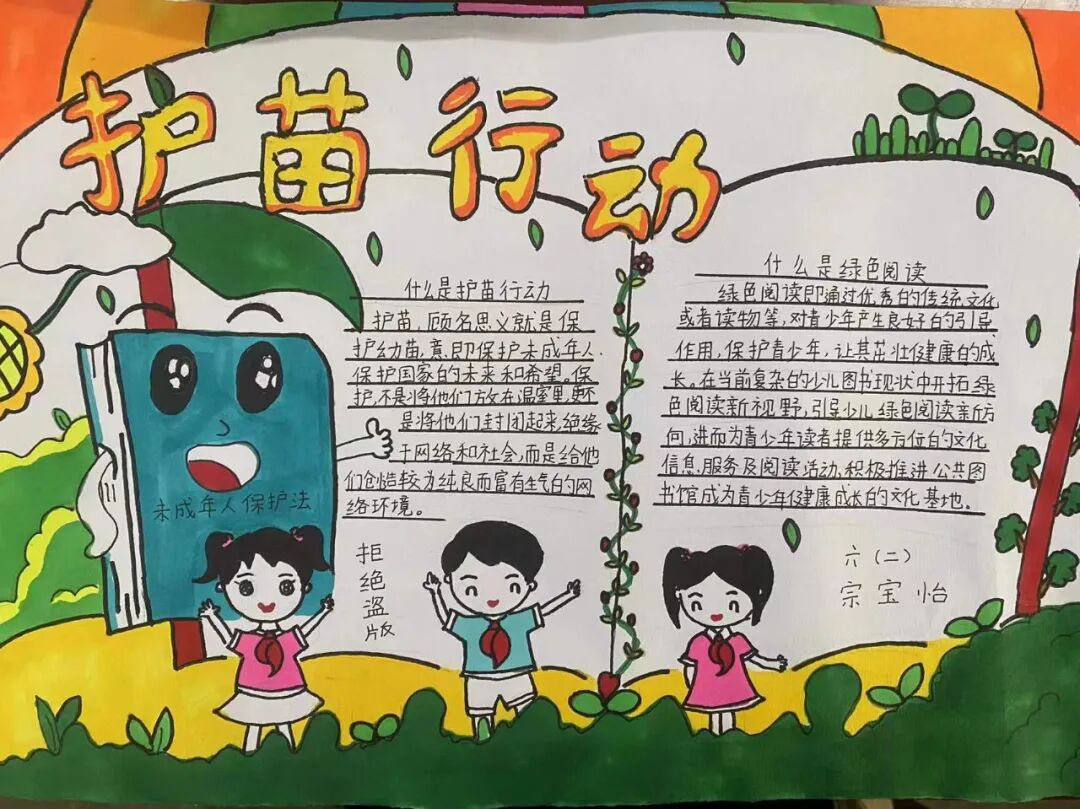 护苗行动
什么是护苗行动
护苗,顾名思义就是保
护幼苗,意即保护未成年人
保护国家的未来和希望。保
护,不是将他们放在温室里,更不
是将他们封闭起来,绝缘
于网络和社会,而是给他
们创造较为纯良而富有生气的网
络环境。
什么是绿色阅读
绿色阅读即通过优秀的传统文化
或者读物等,对青少年产生良好的引导
作用,保护青少年,让其茁壮健康的成
长。在当前复杂的少儿图书现状中开拓绿
色阅读新视野,引导少儿绿色阅读新方
向,进而为青少年读者提供多方位的文化
信息服务及阅读活动,积极推进公共图
书馆成为青少年健康成长的文化基地。
未成年人保护法
拒绝盗版
六(二)
宗宝怡